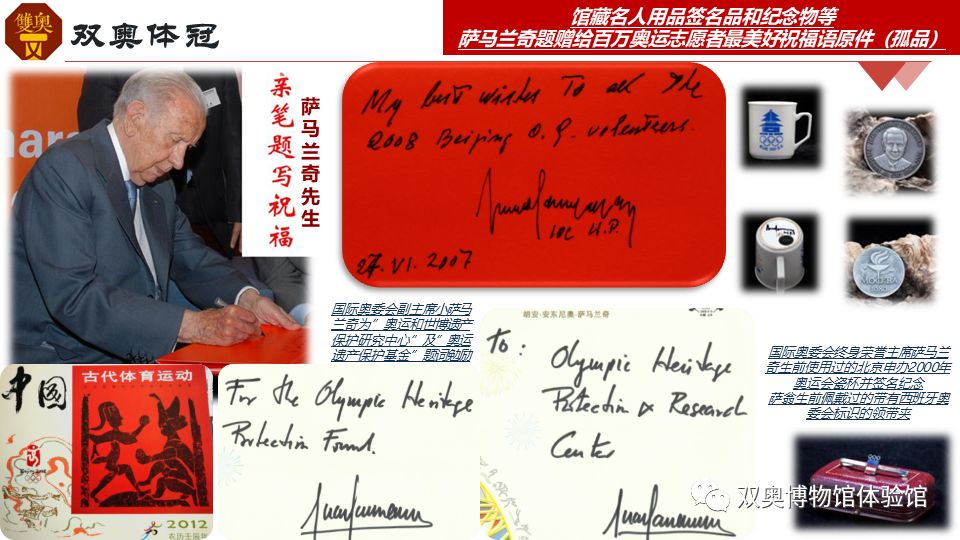 雙奥
双奥体冠
馆藏名人用品签名品和纪念物等
萨马兰奇题赠给百万奥运志愿者最美好祝福语原件（孤品）
亲笔题写祝福
萨马兰奇先生
My best wishes to all the
2008 Beijing O.G. volunteers.
IOC H.P.
27.VI.2007
国际奥委会副主席小萨马
兰奇为”奥运和世博遗产
保护研究中心”及”奥运
遗产保护基金”题词勉励
胡安·安东尼奥·萨马兰奇
To:
Olympic Heritage
Protection & Research
Center
For the Olympic Heritage
Protection Found.
中國
古代体育运动
2012
农历壬辰年
国际奥委会终身荣誉主席萨马兰
奇生前使用过的北京申办2000年
奥运会瓷杯并签名纪念
萨翁生前佩戴过的带有西班牙奥
委会标识的领带夹
МОСКВА
1980
双奥博物馆体验馆